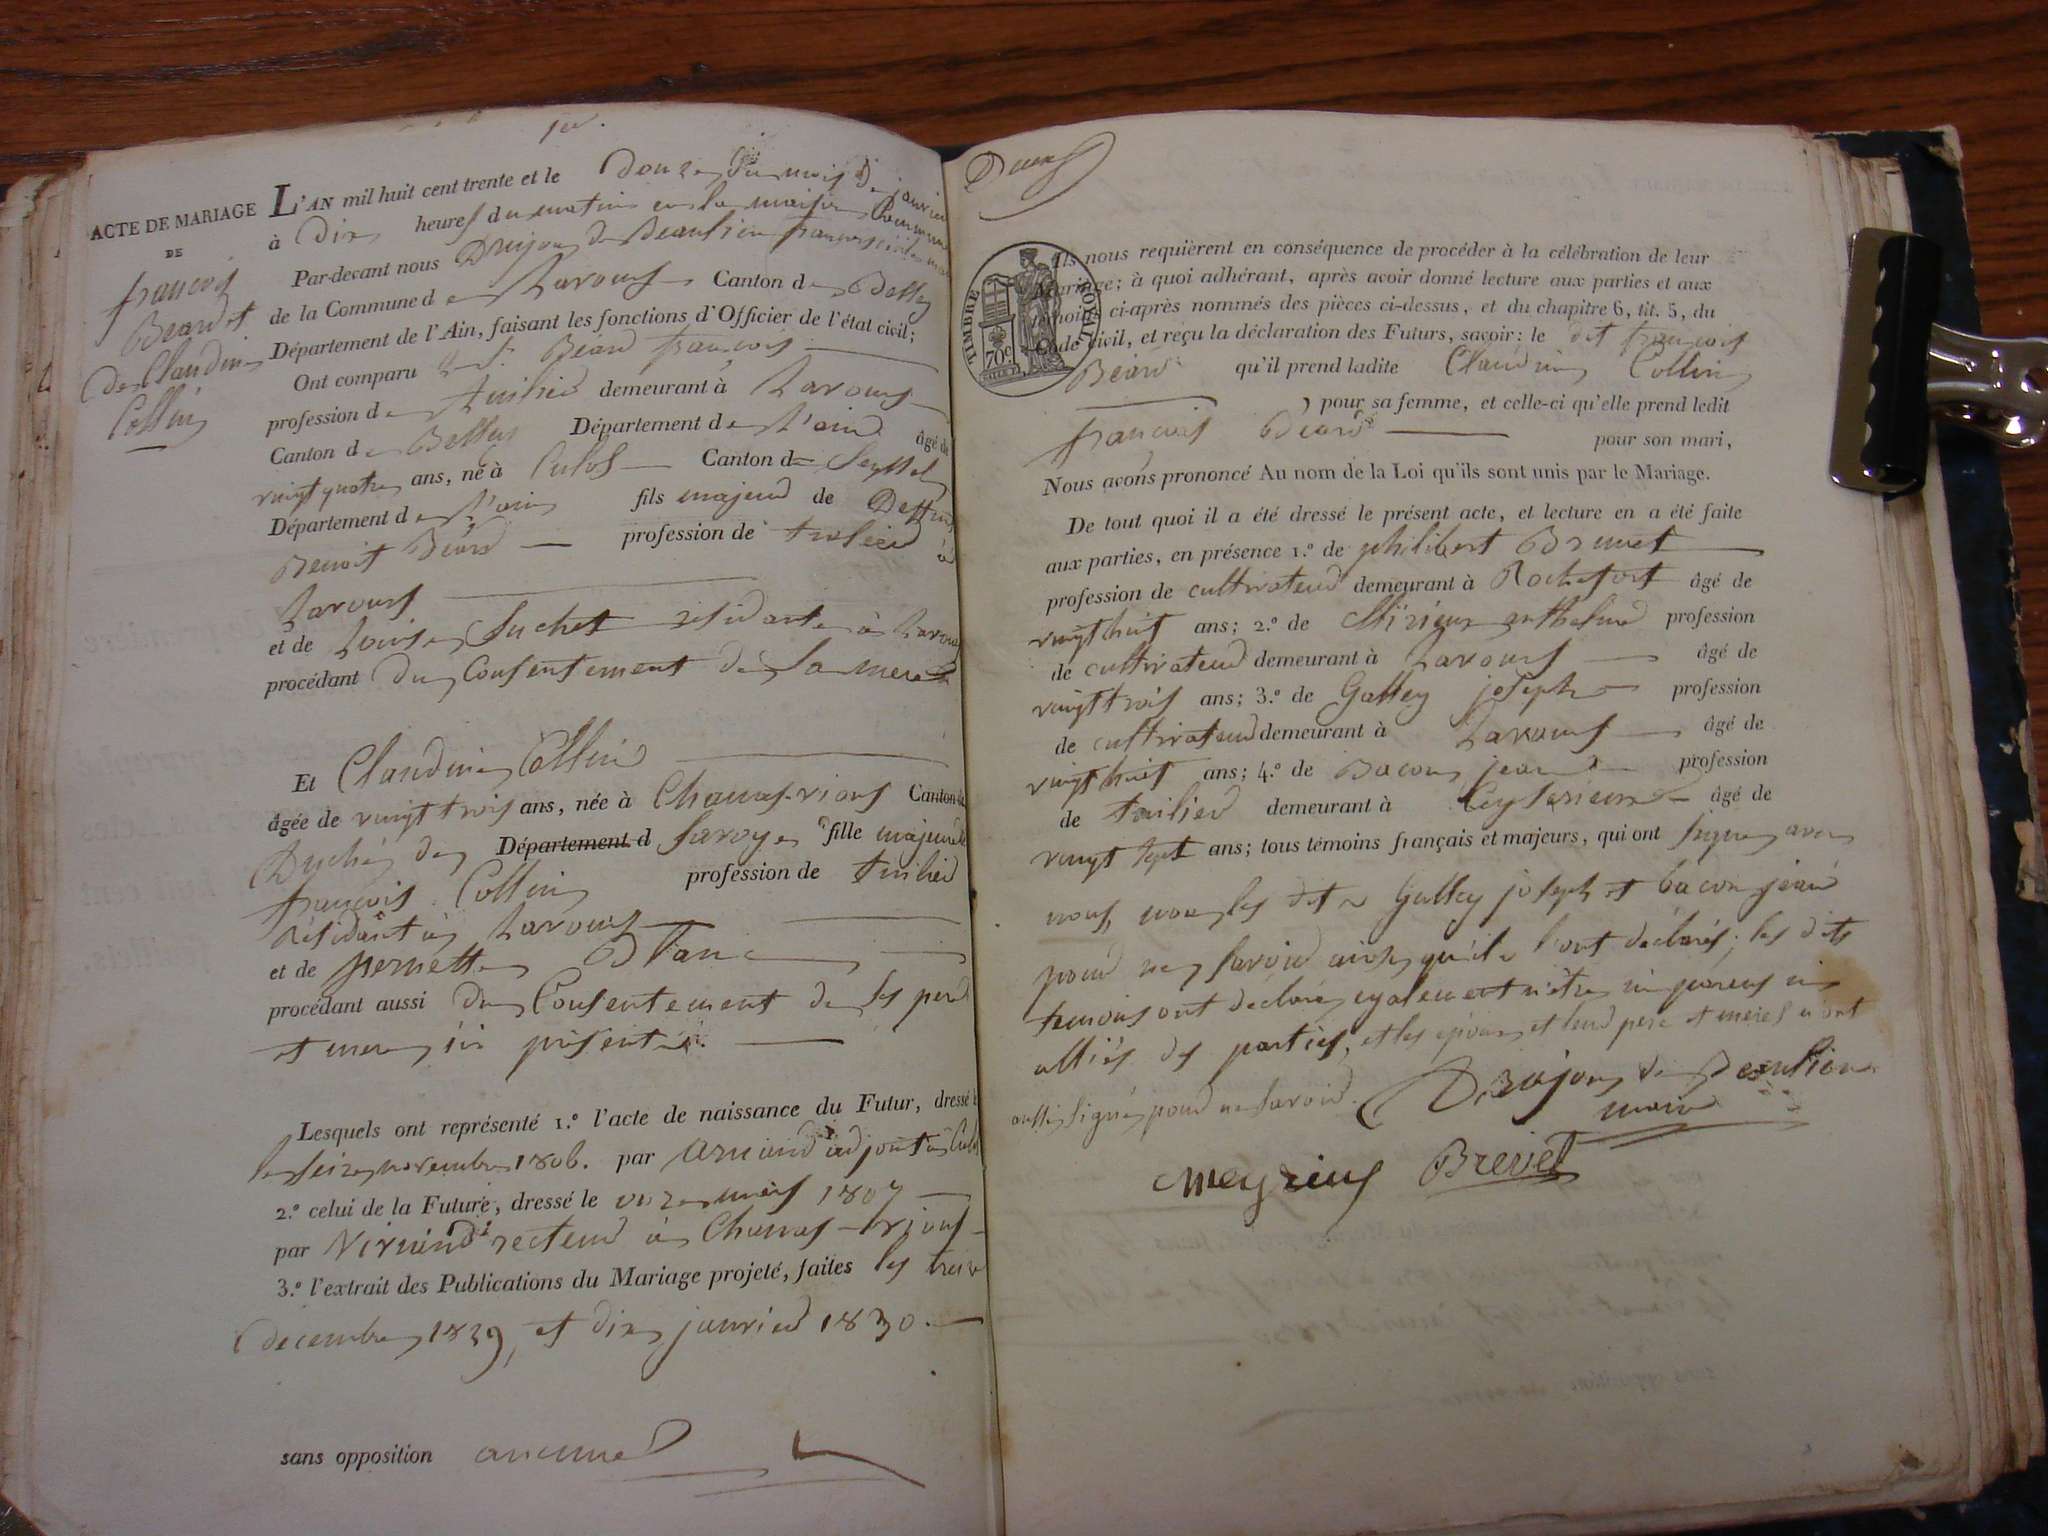 ACTE DE MARIAGE
DE
françois
Béard et
de Claudine
Collin
L'AN mil huit cent trente et le Douze du mois de janvier
à Dix heures du matin en la maison Commune
Par-devant nous Drujon de Beaulieu françois maire
de la Commune de Lavours Canton de Belley
Département de l'Ain, faisant les fonctions d'Officier de l'état civil;
Ont comparu Béard françois
profession de tuilier demeurant à Lavours
Canton de Belley Département de l'ain âgé de
vingt quatre ans, né à Culoz Canton de Seyssel
Département de l'ain fils majeur de Deffunt
Benoit Béard profession de tuilier à
Lavours
et de Louise Suchet résidante à Lavours
procédant du Consentement de Sa mere
Et Claudine Collin
âgée de vingt trois ans, née à Chanas-rions Canton de
Duché de Département d Savoye fille majeure de
françois Collin profession de tuilier
Résidant à Lavours
et de pernette Blanc
procédant aussi du Consentement de ses pere
et mere ici présents.
Lesquels ont représenté 1.º l'acte de naissance du Futur, dressé le
le seize novembre 1806. par adjoint à Culoz
2.º celui de la Future, dressé le onze mars 1807
par recteur à
3.º l'extrait des Publications du Mariage projeté, faites les treize
decembre 1829, et dix janvier 1830.
sans opposition aucune
Deux
TIMBRE ROYAL
70c
Ils nous requièrent en conséquence de procéder à la célébration de leur
Mariage; à quoi adhérant, après avoir donné lecture aux parties et aux
témoins ci-après nommés des pièces ci-dessus, et du chapitre 6, tit. 5, du
Code civil, et reçu la déclaration des Futurs, savoir: le dit françois
Béard qu'il prend ladite Claudine Collin
, pour sa femme, et celle-ci qu'elle prend ledit
françois Béard pour son mari,
Nous avons prononcé Au nom de la Loi qu'ils sont unis par le Mariage.
De tout quoi il a été dressé le présent acte, et lecture en a été faite
aux parties, en présence 1.º de philibert Brevet
profession de cultivateur demeurant à Rochefort âgé de
vingt huit ans; 2.º de anthelme profession
de cultivateur demeurant à Lavours âgé de
vingt trois ans; 3.º de Galley joseph profession
de cultivateur demeurant à Lavours âgé de
vingt huit ans; 4.º de Bacon jean profession
de tuilier demeurant à Ceyserieux âgé de
vingt sept ans; tous témoins français et majeurs, qui ont signé avec
nous, non les dits Galley joseph et bacon jean
pour ne savoir ainsi qu'ils l'ont déclarés; les dits
temoins ont déclaré egalement n'être ni parens ni
alliés des parties, et les epoux et leur pere et meres n'ont
aussi signé pour ne savoir. Drujon de Beaulieu
maire
meyrieux Brevet